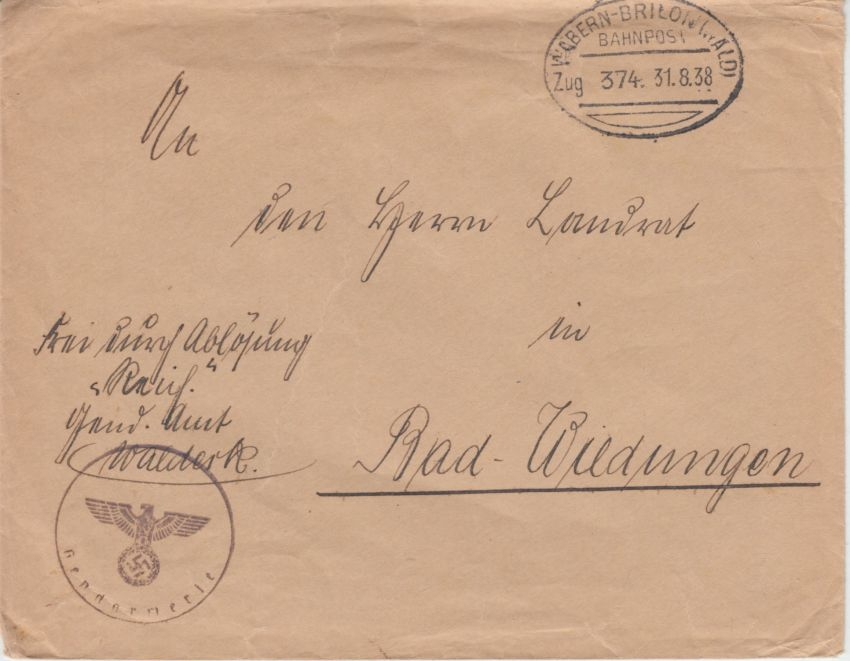 WABERN-BRILON (WALD)
BAHNPOST
Zug 374. 31.8.38
An
den Herrn Landrat
in
Bad-Wildungen
Frei durch Ablösung
"Reich."
Gend. Amt
Waldeck.
Gendarmerie